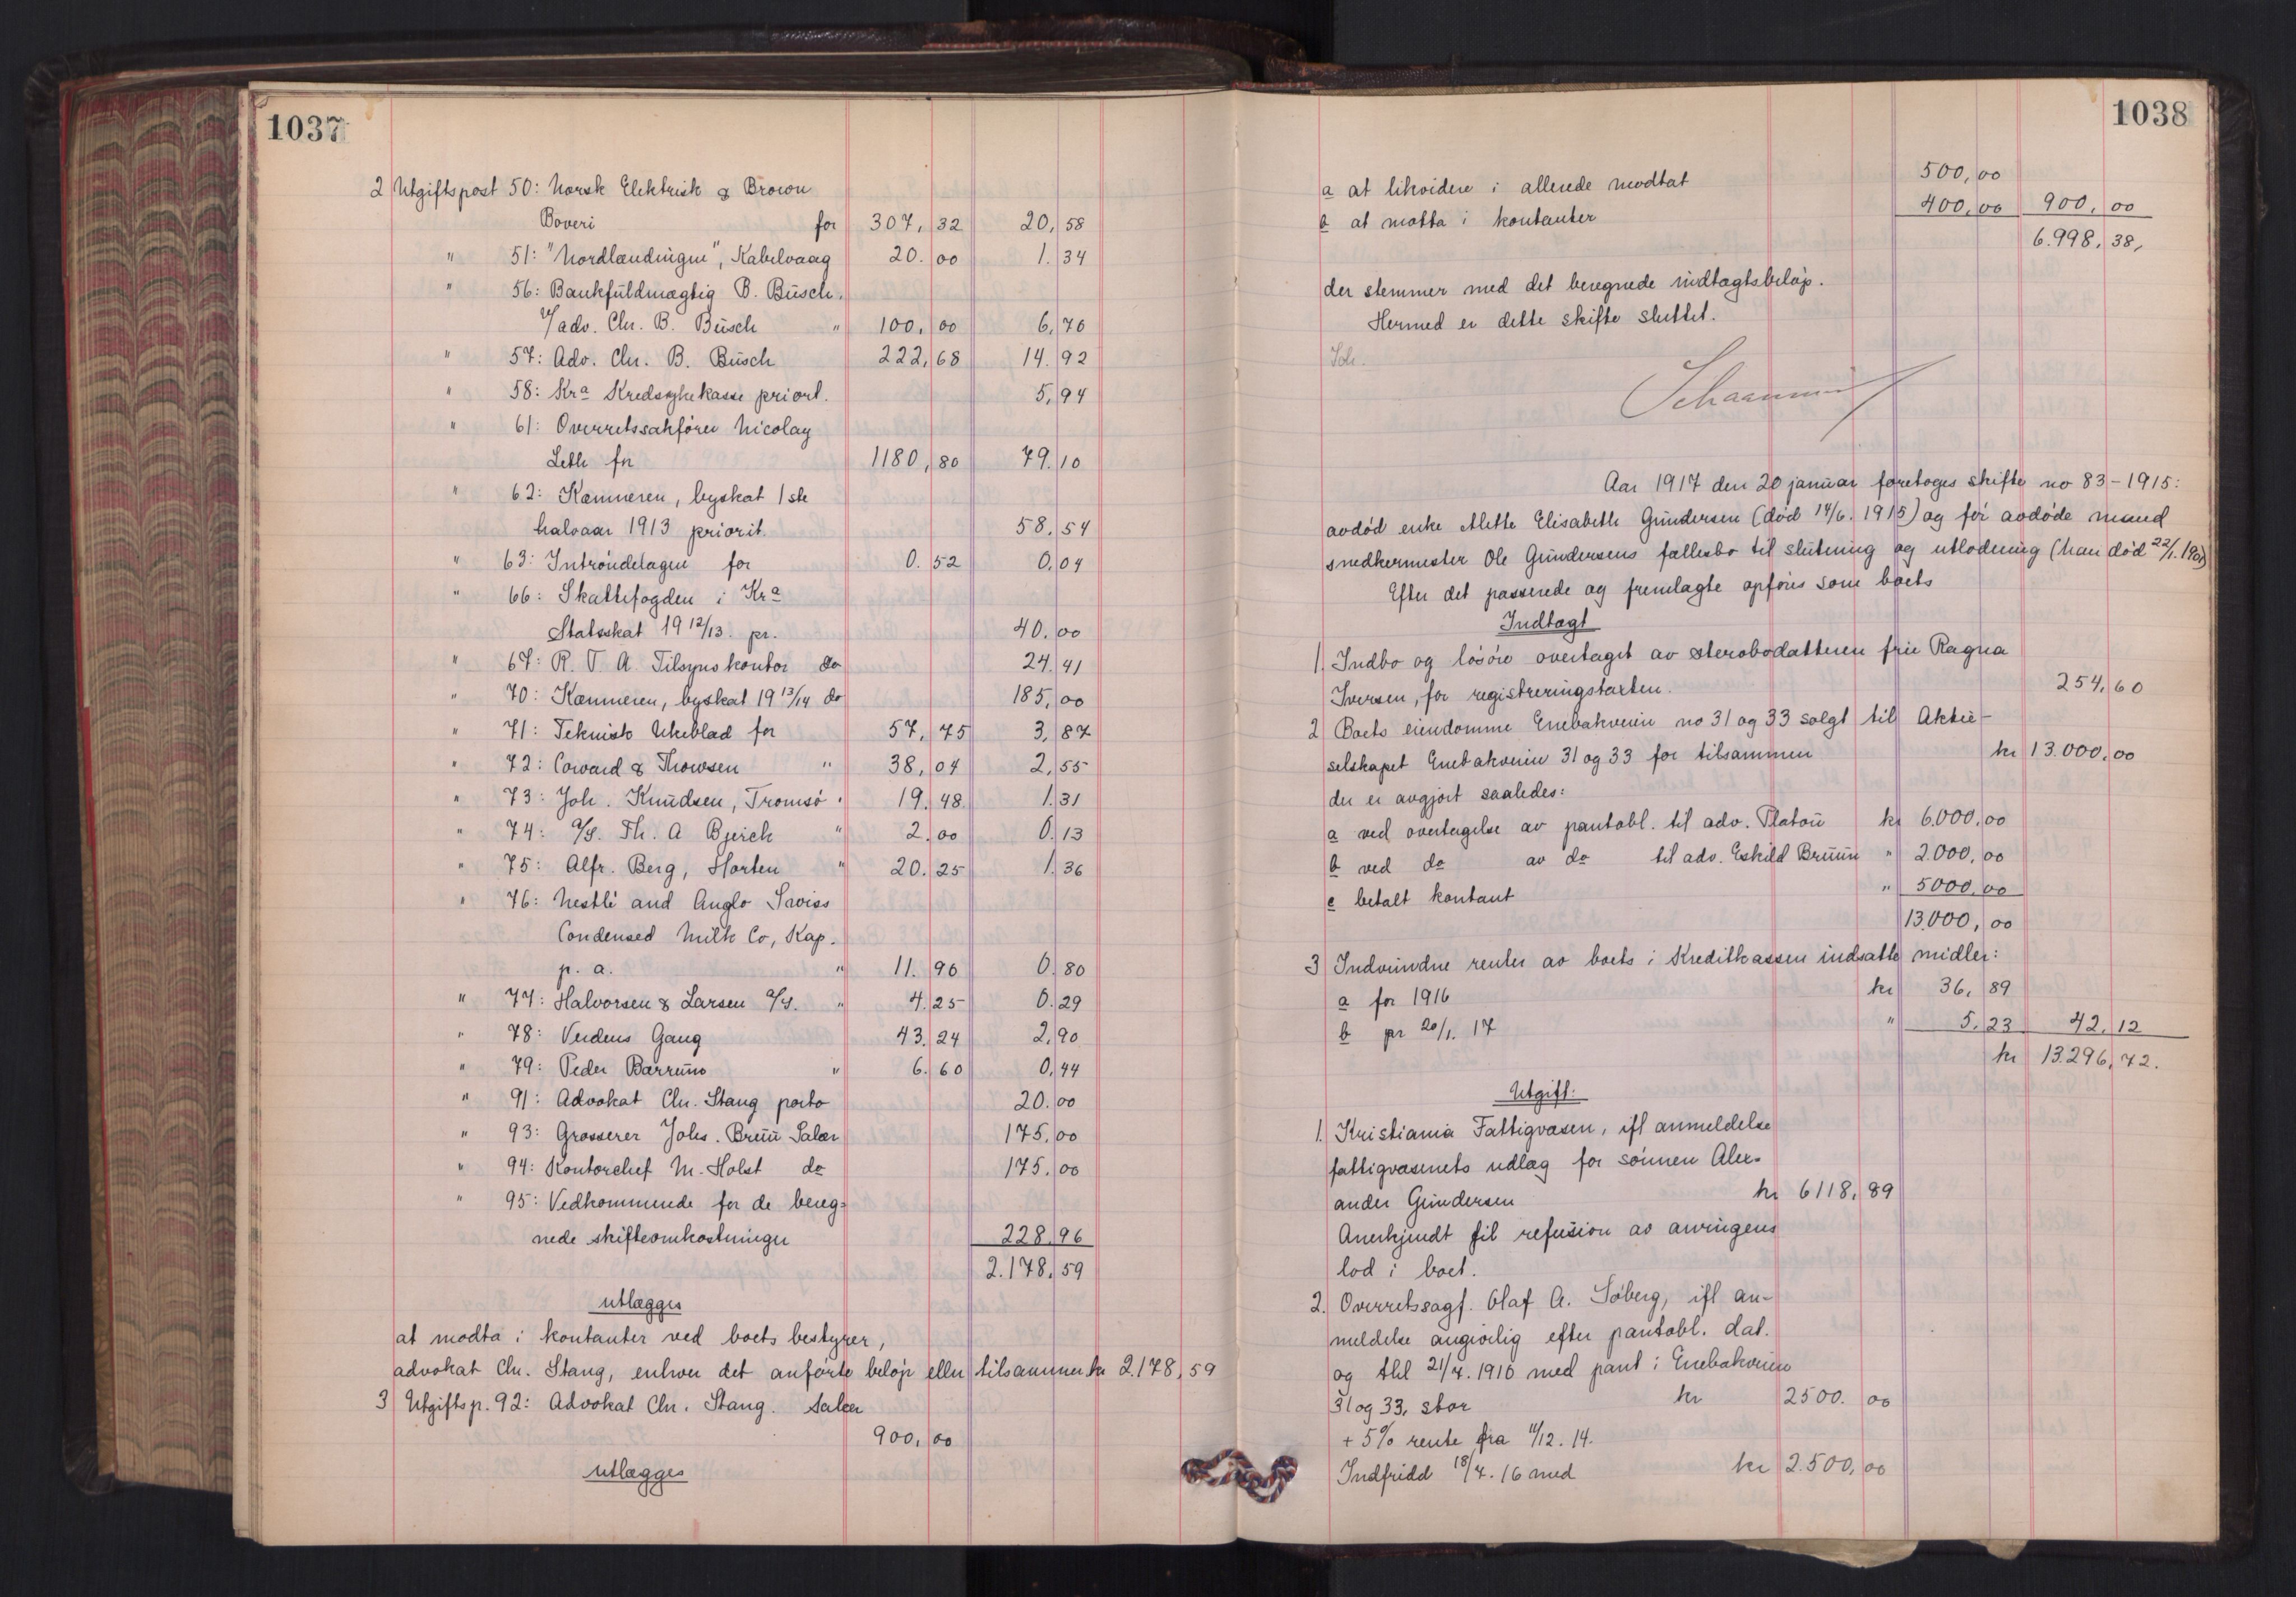 1037
2 Utgiftspost 50: Norsk Elektrisk & Brown
Boveri for 307,32 20,58
" 51: "Nordlændingen", Kabelvaag 20.00 1.34
" 56: Bankfuldmægtig B. Busch.
v/adv. Chr. B. Busch " 100,00 6,70
" 57: Adv. Chr. B. Busch 222,68 14.92
" 58: Kra Kredssykekasse priort. 5,94
" 61: Overretssakfører Nicolay
Leth for 1180,80 79.10
" 62: Kæmneren, byskat 1ste
halvaar 1913 priorit. 58,54
" 63: Intrøndelagen for 0.52 0,04
" 66: Skattefogden i Kra
Statsskat 19 12/13. pr. 40.00
" 67: R. T. A. Tilsynskontor do 24.41
" 70: Kæmneren, byskat 19 13/14 do 185,00
" 71: Teknisk Ukeblad for 57,75 3,87
" 72: Coward & Thowsen " 38,04 2,55
" 73: Joh. Knudsen, Tromsø " 19.48 1.31
" 74: A/S. Th. A Bjerck " 2.00 0.13
" 75: Alfr. Berg, Horten " 20.25 1.36
" 76: Nestlé and Anglo Swiss
Condensed Milk Co, Kap.
p. a. " 11.90 0.80
" 77: Halvorsen & Larsen A/S. " 4.25 0.29
" 78: Verdens Gang 43.24 2,90
" 79: Peder " 6.60 0,44
" 91: Advokat Chr. Stang porto 20.00
" 93: Grosserer Johs. Bruu Salær 175,00
" 94: Kontorchef M. Holst do 175.00
" 95: Vedkommende for de bereg-
nede skifteomkostninger 228.96
2.178,59
utlægges
at modta i kontanter ved boets bestyrer,
advokat Chr. Stang, enhver det anførte beløp eller tilsammen kr 2.178,59
3 Utgiftsp. 92: Advokat Chr. Stang. Salær
900,00
utlægges
1038
a at likvidere i allerede modtat 500,00
b at motta i kontanter 400,00 900,00
6.998,38,
der stemmer med det beregnede indtægtsbeløp.
Hermed er dette skifte sluttet.
Joh.
Schaanning
Aar 1917 den 20 januar foretoges skifte no 83-1915:
avdød enke Alette Elisabeth Gundersen (død 14/6. 1915) og før avdøde mand
snedkermester Ole Gundersens fællesbo til slutning og utlodning (han død 22/1.
Efter det passerede og fremlagte opføres som boets
Indtægt
1. Indbo og løsøre overtaget av sterbodatteren frue Ragna
Iversen, for registreringstaxten. 254,60
2 Boets eiendomme Enebakveien no 31 og 33 solgt til Aktie-
selskapet Enebakveien 31 og 33 for tilsammen kr 13.000,00
der er avgjort saaledes:
a ved overtagelse av pantobl. til adv. Platou kr 6.000,00
b ved do av do til adv. Eskild Bruun " 2.000,00
c betalt kontant " 5000,00
13.000,00
3 Indvundne renter av boets i Kreditkassen indsatte midler:
a for 1916 kr 36,89
b pr 20/1. 17 " 5,23 42,12
kr 13.296,72.
Utgift:
1. Kristiania Fattigvæsen, ifl anmeldelse
fattigvæsenets udlæg for sønnen Alex-
ander Gundersen kr 6118,89
Anerkjendt til refusion av arvingens
lod i boet.
2. Overretssagf. Olaf A. Søberg, ifl an-
meldelse angivelig efter pantobl. dat.
og thl 21/7. 1910 med pant i Enebakveien
31 og 33, stor kr 2500.00
+ 5% rente fra 11/12. 14.
Indfridd 18/7. 16 med kr 2.500,00